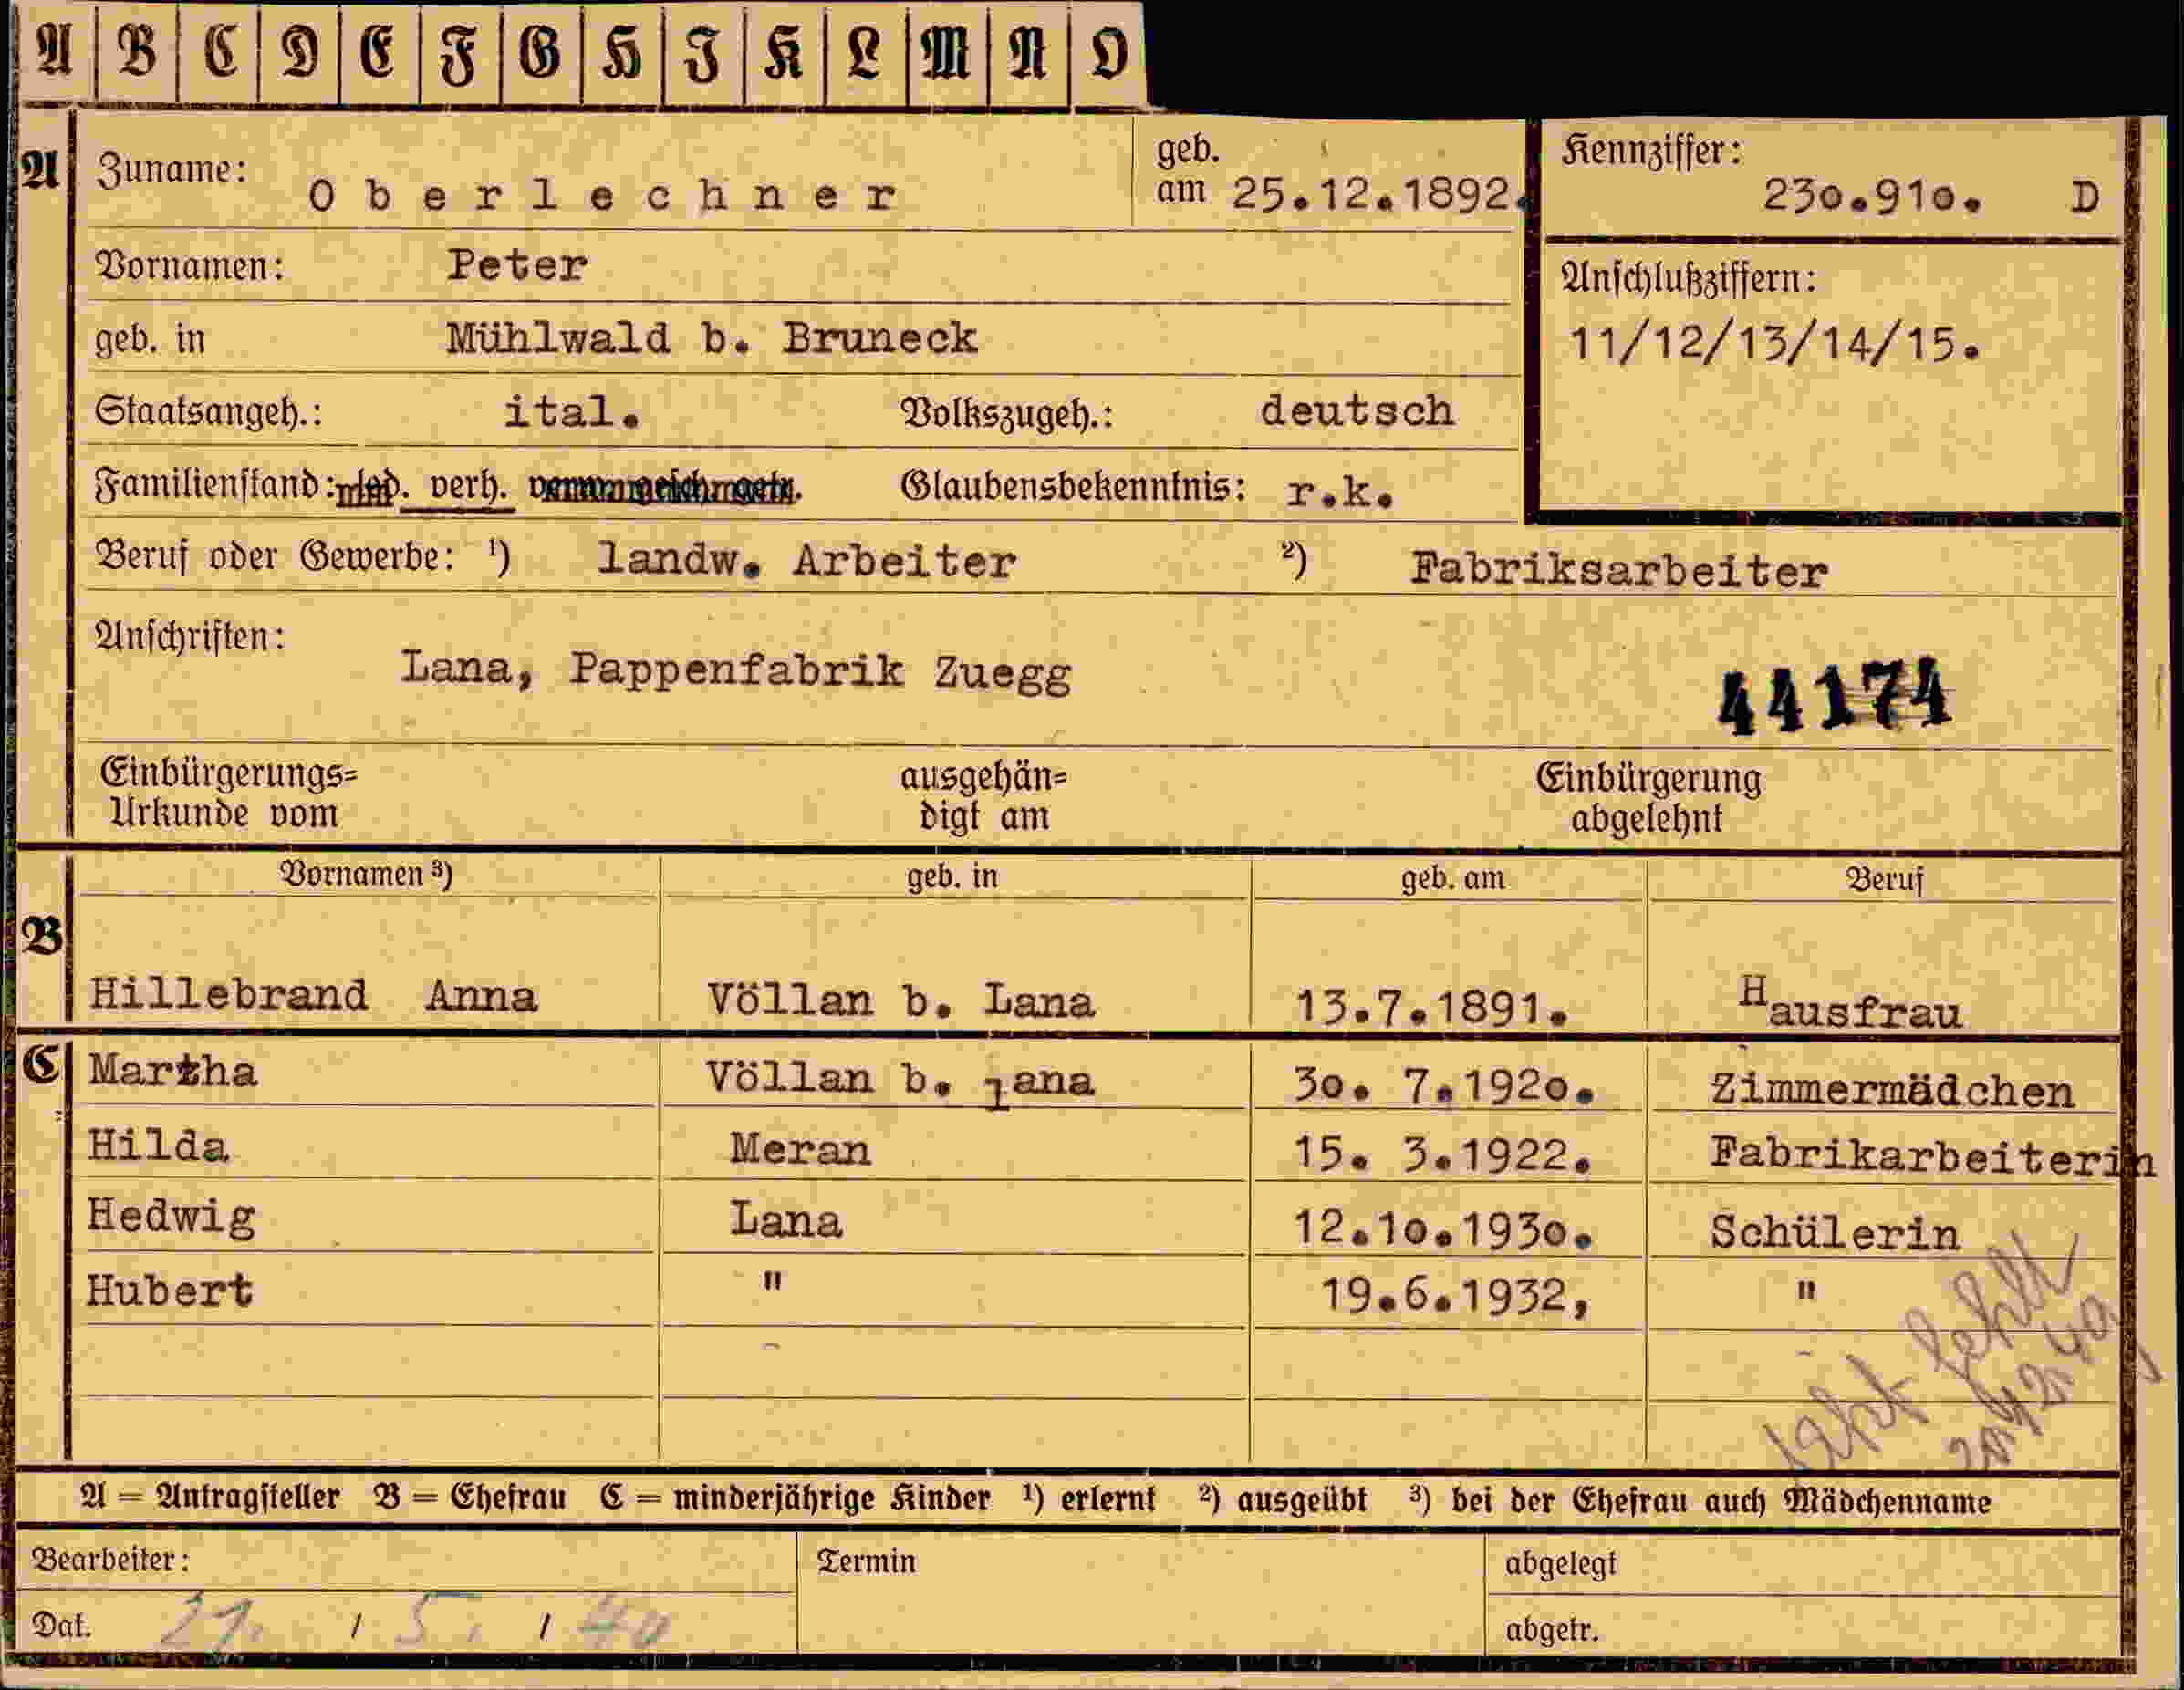 A B C D E F G H I K L M N O
A Zuname: Oberlechner geb. am 25.12.1892. Kennziffer: 230.910. D
Vornamen: Peter Anschlußziffern:
geb. in Mühlwald b. Bruneck 11/12/13/14/15.
Staatsangeh.: ital. Volkszugeh.: deutsch
Familienstand: verh. Glaubensbekenntnis: r.k.
Beruf oder Gewerbe: 1) landw. Arbeiter 2) Fabriksarbeiter
Anschriften: Lana, Pappenfabrik Zuegg 44174
Einbürgerungs= ausgehän= Einbürgerung
Urkunde vom digt am abgelehnt
Vornamen 3) geb. in geb. am Beruf
B Hillebrand Anna Völlan b. Lana 13.7.1891. Hausfrau
C Martha Völlan b. Lana 30. 7.1920. Zimmermädchen
Hilda Meran 15. 3.1922. Fabrikarbeiterin
Hedwig Lana 12.10.1930. Schülerin
Hubert " 19.6.1932, "
A = Antragsteller B = Ehefrau C = minderjährige Kinder 1) erlernt 2) ausgeübt 3) bei der Ehefrau auch Mädchenname
Bearbeiter: Termin abgelegt
Dat. 21. / 5. / 40 abgetr.